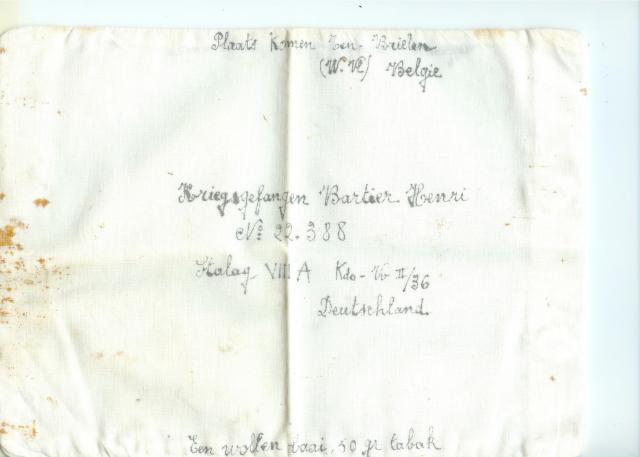 Plaats Komen Ten-Brielen
(W. Vl) Belgie
Kriegsgefangen Bartier Henri
No 22.388
Stalag VIII A Kdo-Vo II/36
Deutschland.
Een wollen baai, 50 gr tabak